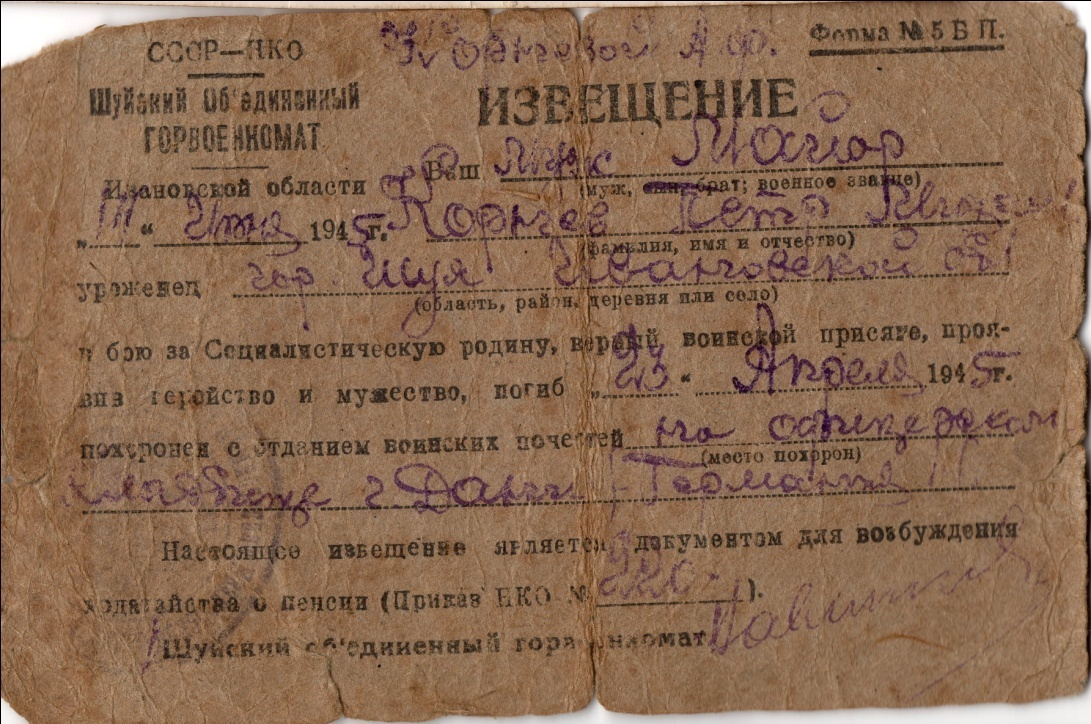 СССР—НКО
Форма № 5 Б П.
Шуйский Об'единенный
ГОРВОЕНКОМАТ
Ивановской области
ИЗВЕЩЕНИЕ
Ваш муж Майор
(муж, сын, брат; военное звание)
1945 г. Корнев Петр
(фамилия, имя и отчество)
уроженец гор. Шуя Ивановской обл
(область, район, деревня или село)
в бою за Социалистическую родину, верный воинской присяге, проя-
вив геройство и мужество, погиб „23“ Апреля 1945 г.
похоронен с отданием воинских почестей на офицерском
(место похорон)
кладбище г. Германия
Настоящее извещение является документом для возбуждения
ходатайства о пенсии (Приказ НКО № ).
Шуйский об'единенный горвоенкомат